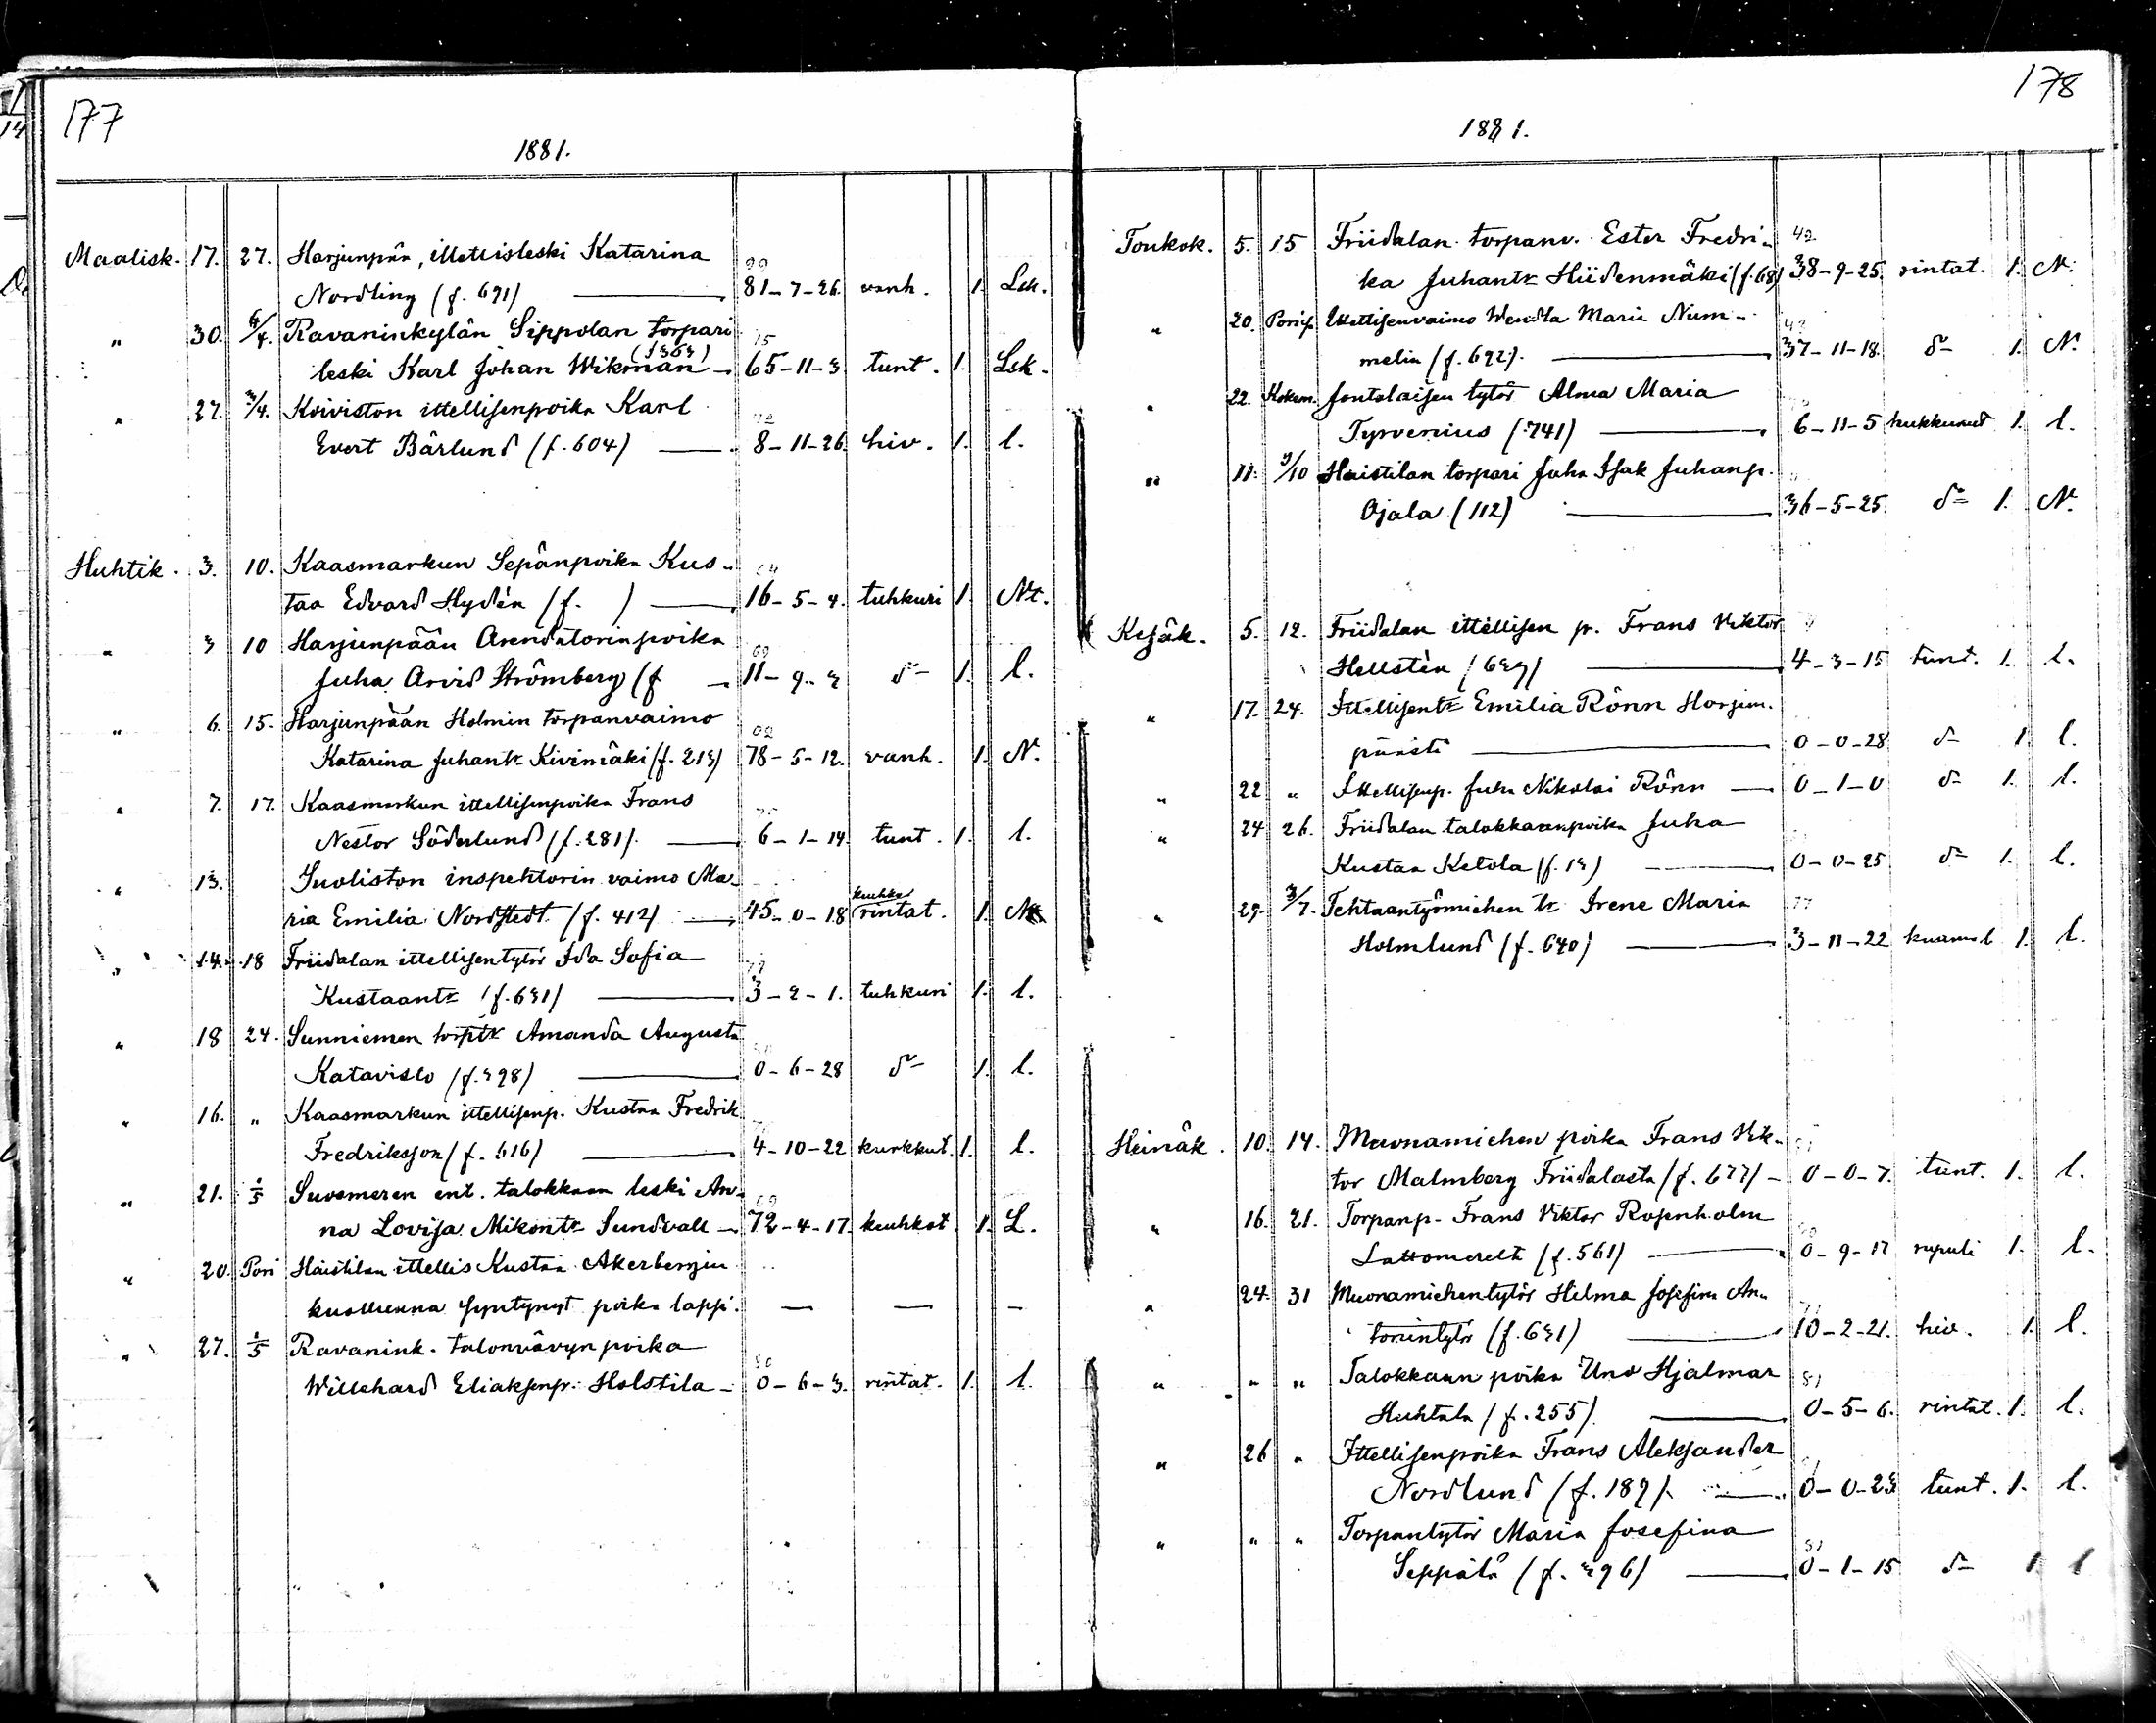 177
1881.
Maalisk. 17. 27. Harjunpään, ittellisleski Katarina
Nordling (f. 691) — 81-7-26. vanh. 1. Lsk.
" 30. 6/4. Ravaninkylän Sippolan torpari
leski Karl Johan Wikman — 65-11-3 tunt. 1. Lsk.
" 27. 3/4. Koiviston ittellisenpoika Karl
Evert Bärlund (f. 604) — 8-11-26. hiv. 1. l.
Huhtik. 3. 10. Kaasmarkun Sepänpoika Kus-
taa Edvard Hydén (f. ) — 16-5-4. tuhkuri 1. Nt.
" 3 10 Harjunpään Arendatorinpoika
Juha Arvid Strömberg (f — 11-9-3 d:o 1. l.
" 6. 15. Harjunpään Holmin torpanvaimo
Katarina Juhantr Kivimäki (f. 213) 78-5-12. vanh. 1. N.
" 7. 17. Kaasmarkun ittellisenpoika Frans
Nestor Söderlund (f. 281). — 6-1-14. tunt. 1. l.
" 13. Suoliston inspehtorin vaimo Ma-
ria Emilia Nordstedt (f. 412) — 45-0-18 keuhko rintat. 1.
" 14. 18 Friidalan ittellisentytör Ida Sofia
Kustaantr (f. 631) — 3-2-1. tuhkuri 1. l.
" 18 24. Sunniemen torptr Amanda Augusta
Katavisto (f. 398) — 0-6-28 d:o 1. l.
" 16. " Kaasmarkun ittellisenp. Kustaa Fredrik
Fredriksson (f. 616) — 4-10-22 kurkkut. 1. l.
" 21. 1/5 Suosmeren ent. talokkaan leski An-
na Lovisa Mikontr Sundvall — 72-4-17. keuhkot. 1. L.
" 20. Pori Haistilan ittellis Kustaa Åkerbergin
kuolleena syntynyt poika lapsi. — — —
" 27. 1/5 Ravanink. talonvävyn poika
Willehard Eliaksenp. Holstila — 0-6-3. rintat. 1. l.
178
1881.
Toukok. 5. 15 Friidalan torpanv. Ester Fredri-
ka Juhantr Hiidenmäki (f. 68) 38-9-25. rintat. 1. N.
" 20. Ittellisenvaimo Wendla Maria Num-
melin (f. 692). — 37-11-18. d:o 1. N.
" 22. Kokem. Jontalaisen tytör Alma Maria
Tyrvenius (741) — 6-11-5 hukkunut 1. l.
" 11. 9/10 Haistilan torpari Juha Isak Juhanp.
Ojala (112) — 36-5-25 d:o 1. N.
Kesäk. 5. 12. Friidalan ittellisen p. Frans Viktor
Hellstén (639) — 4-3-15 tunt. 1. l.
" 17. 24. Ittellisentr Emilia Rönn Harjun-
päästä — 0-0-28 d:o 1. l.
" 22 " Ittellisenp. Juha Nikolai Rönn — 0-1-0 d:o 1. l.
" 24 26. Friidalan talokkaanpoika Juha
Kustaa Ketola (f. 13) — 0-0-25 d:o 1. l.
" 29. 3/7. Tehtaantyömiehen tr Irene Maria
Holmlund (f. 640) — 3-11-22 1. l.
Heinäk. 10. 14. Muonamiehen poika Frans Vik-
tor Malmberg Friidalasta (f. 677) — 0-0-7. tunt. 1. l.
" 16. 21. Torpanp. Frans Viktor Rosenholm
Lattomerelt (f. 561) — 0-9-17 rupuli 1. l.
" 24. 31 Muonamiehentytör Hilma Josefina An-
tonintytr (f. 631) — 10-2-21. hiv. 1. l.
" " " Talokkaan poika Uno Hjalmar
Huhtala (f. 255). — 0-5-6. rintat. 1. l.
" 26 " Ittellisenpoika Frans Aleksander
Nordlund (f. 189). — 0-0-23 tunt. 1. l.
" " " Torpantytör Maria Josefina
Seppälä (f. 396) — 0-1-15 d:o 1 l